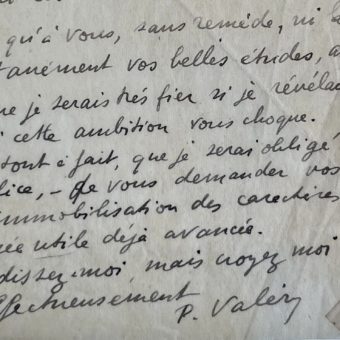 qu'à vous, sans remède, ni
tanément vos belles études, a
ue je serais très fier si je révélai
i cette ambition vous choque.
tout à fait, que je serai obligé
lice, - de vous demander vos
immobilisation des caractères
ée utile déjà avancée.
dissez-moi, mais croyez moi
ffectueusement
P. Valéry